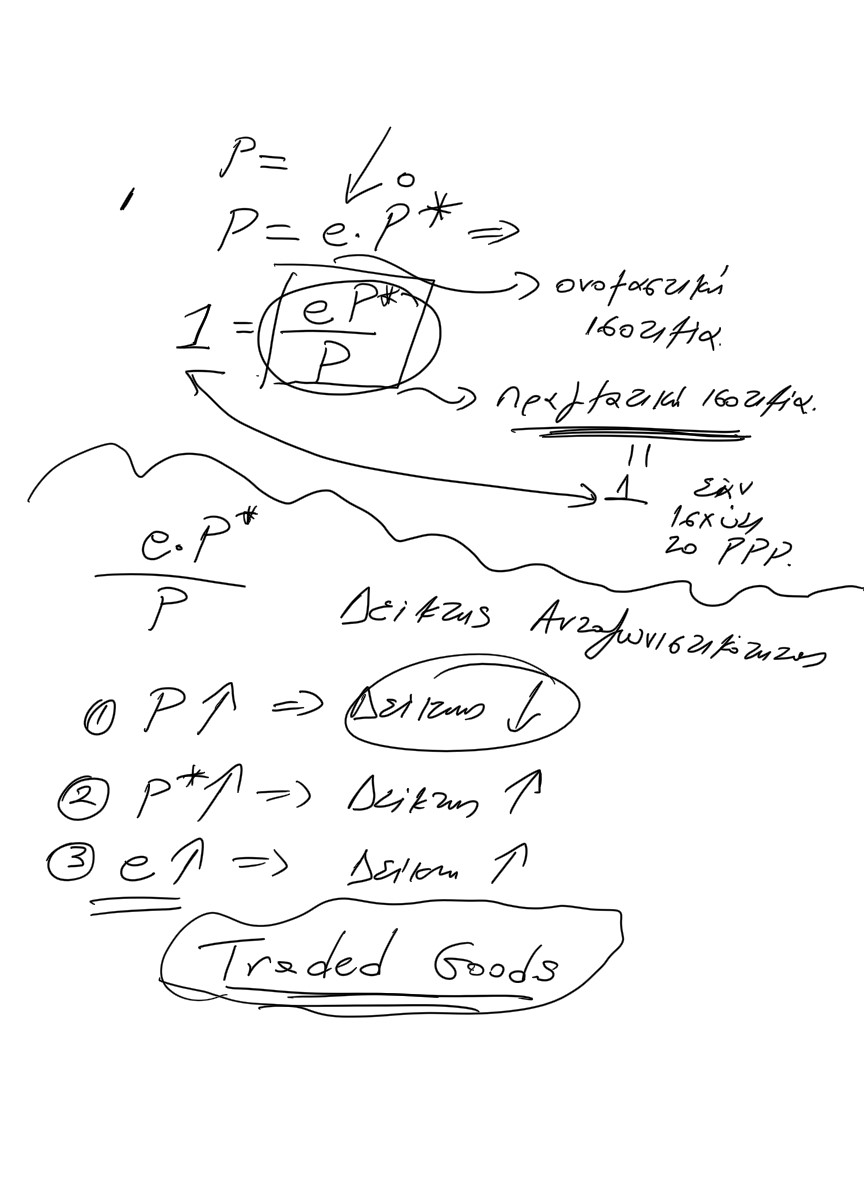 P =
P = e. P* ⇒
ονομαστική
ισοτιμία.
1 = e P* / P
πραγματική ισοτιμία.
||
1 εάν
ισχύει
το PPP.
e. P* / P
Δείκτης Ανταγωνιστικότητας
① P ↑ ⇒ Δείκτης ↓
② P* ↑ ⇒ Δείκτης ↑
③ e ↑ ⇒ Δείκτη ↑
Traded Goods